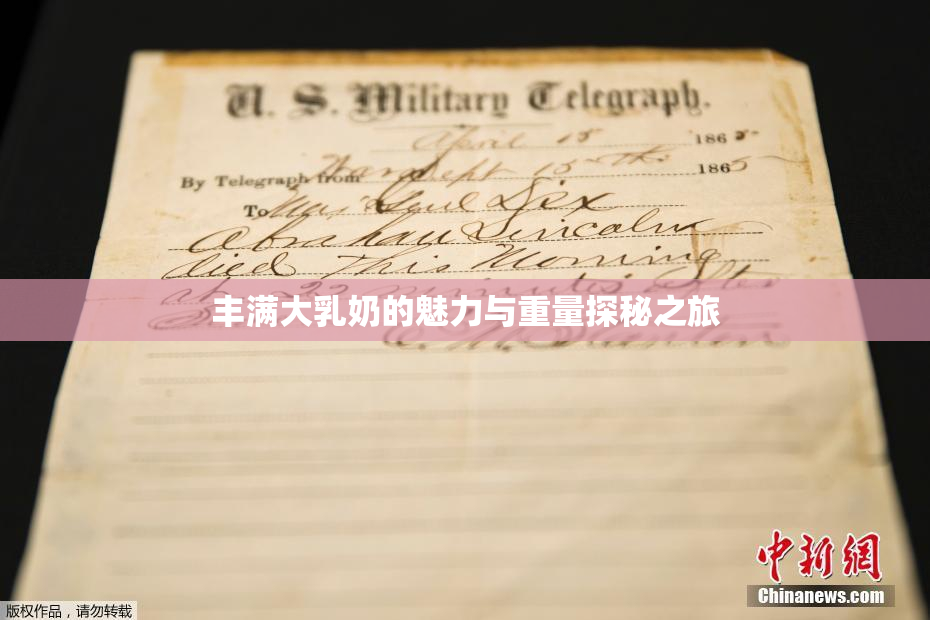 U. S. Military Telegraph.
April 15 1865.
By Telegraph from War Dept 15th 1865
To Maj Genl Dix
Abraham Lincoln
died This Morning
at 22 minutes after
丰满大乳奶的魅力与重量探秘之旅
E. M. Stanton
中新网
Chinanews.com
版权作品，请勿转载